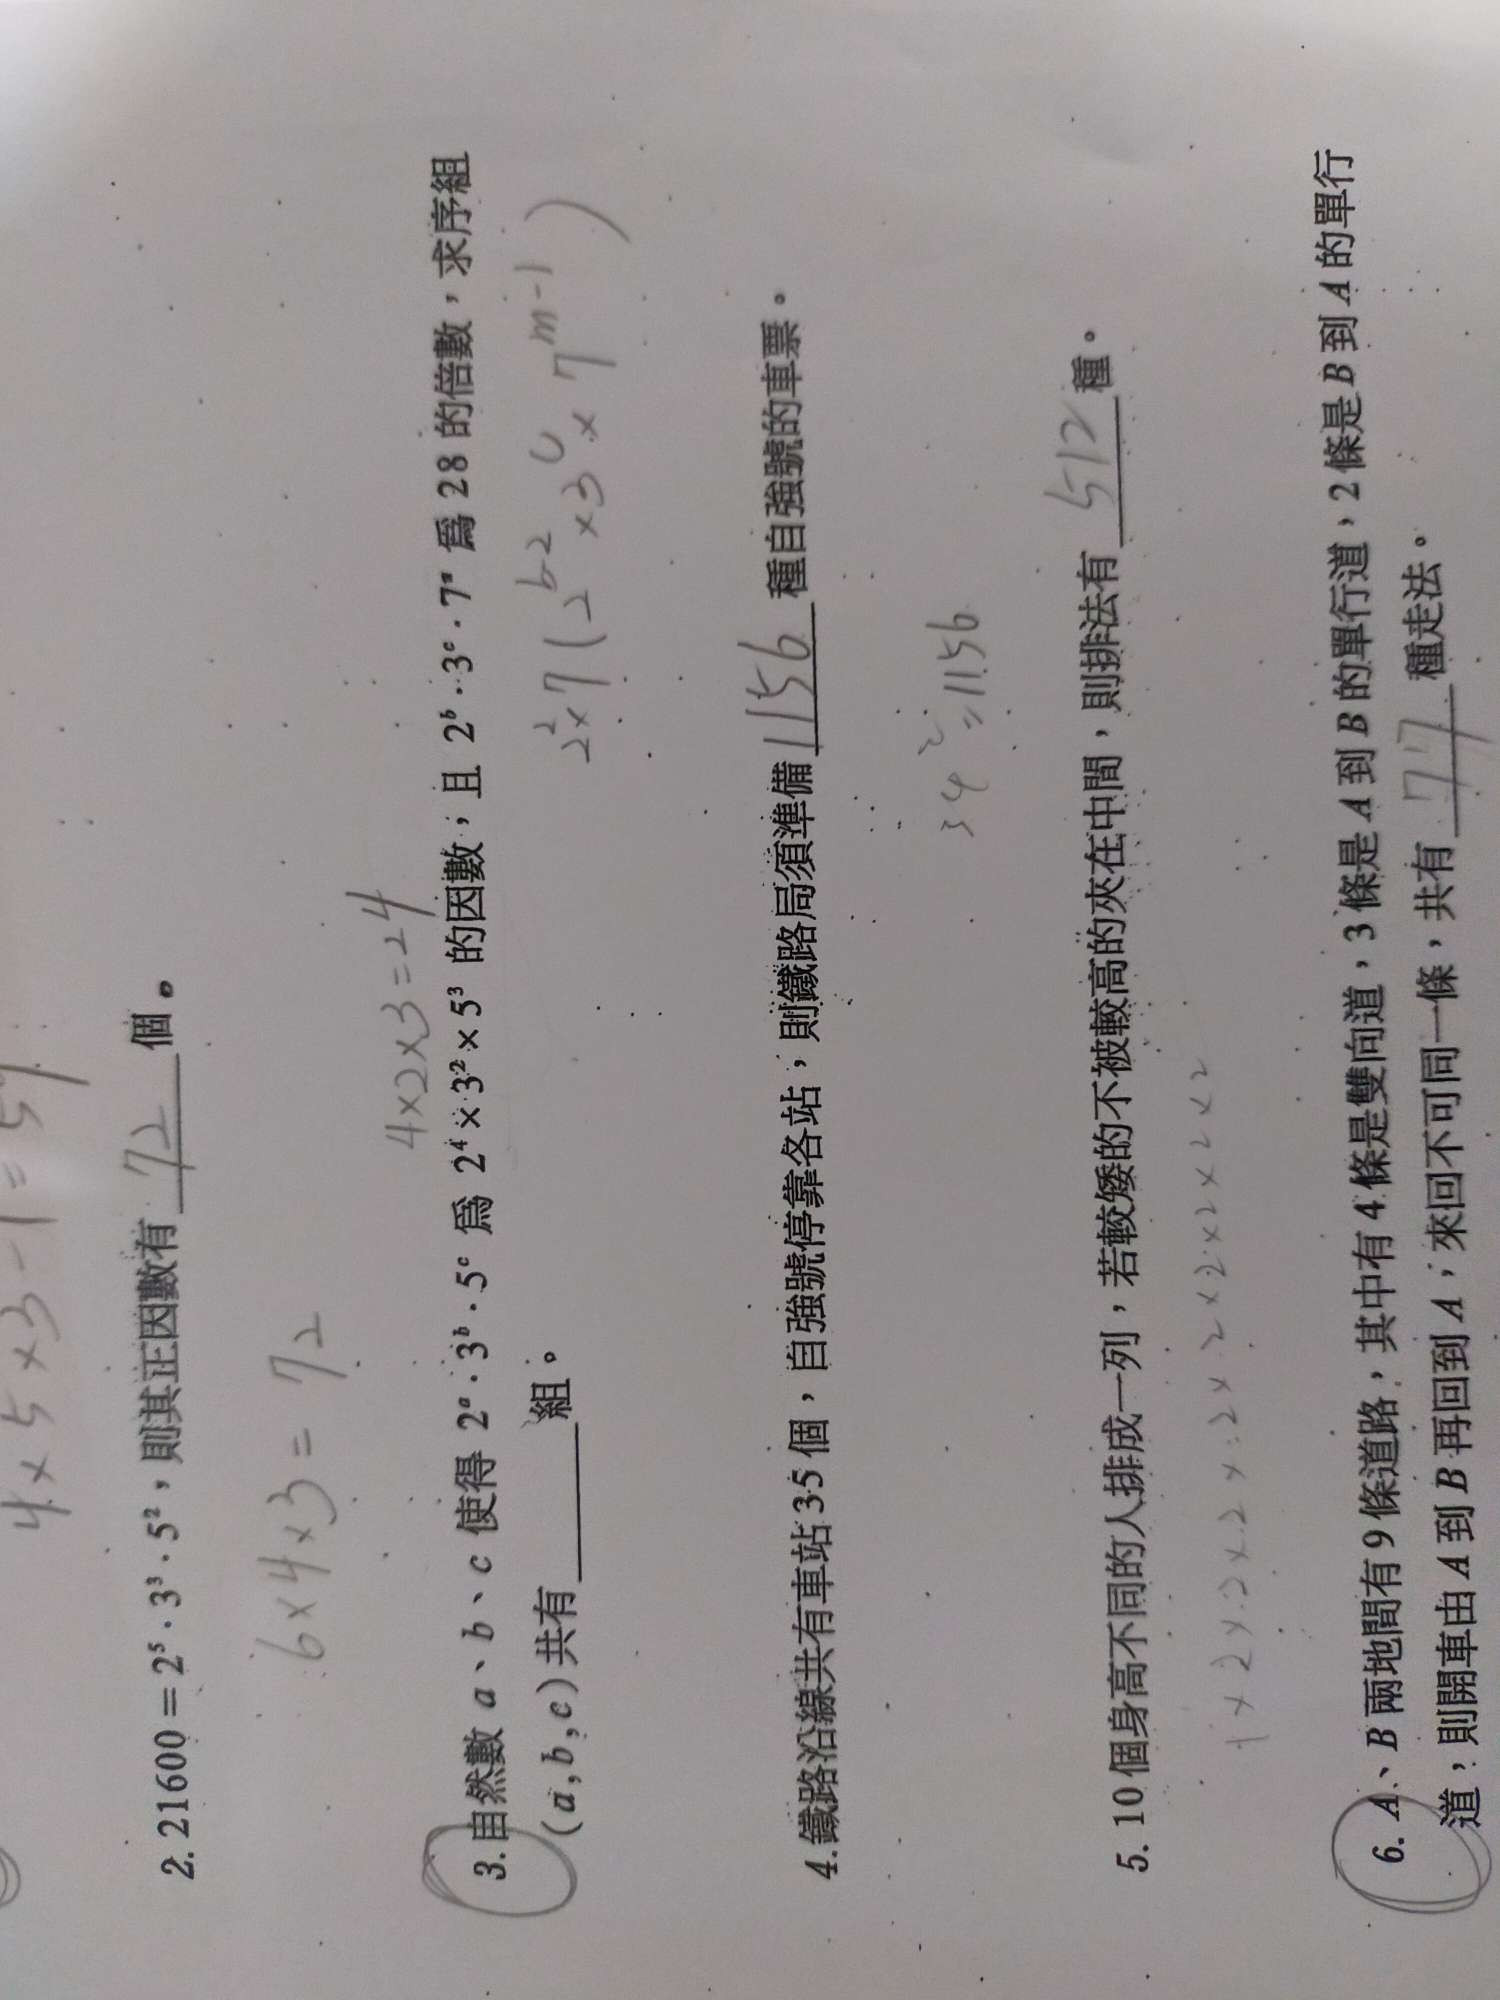 4×5×3-1=59
2. 21600＝2⁵·3³·5²，則其正因數有 72 個。
6×4×3=72
4×2×3=24
3. 自然數 a、b、c 使得 2ᵃ·3ᵇ·5ᶜ 爲 2⁴×3²×5³ 的因數；且 2ᵇ·3ᶜ·7ᵃ 爲 28 的倍數，求序組
(a,b,c)共有______組。
2²×7(2ᵇ⁻²×3ᶜ×7ᵐ⁻¹)
4. 鐵路沿線共有車站 35 個，自強號停靠各站，則鐵路局須準備 1156 種自強號的車票。
34²=1156
5. 10 個身高不同的人排成一列，若較矮的不被較高的夾在中間，則排法有 512 種。
1×2×2×2×2×2×2×2×2×2
6. A、B 兩地間有 9 條道路，其中有 4 條是雙向道，3 條是 A 到 B 的單行道，2 條是 B 到 A 的單行
道，則開車由 A 到 B 再回到 A，來回不可同一條，共有 77 種走法。